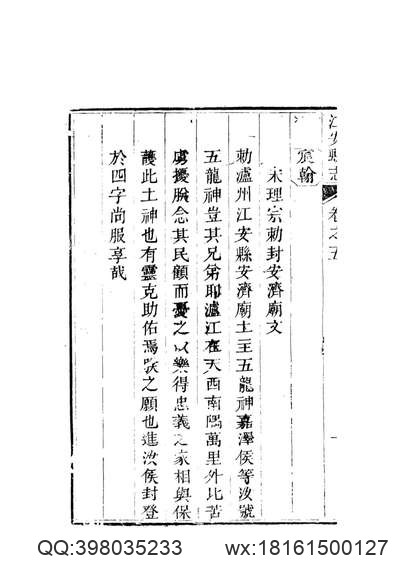 江安縣志 卷之五 一
宸翰
宋理宗勅封安濟廟文
勅瀘州江安縣安濟廟土主五龍神嘉澤侯等汝號
五龍神豈其兄弟耶瀘江在天西南隅萬里外比苦
虜擾朕念其民顧而憂之以樂得忠義之家相與保
護此土神也有靈克助佑焉朕之願也進汝侯封登
於四字尚服享哉
QQ:398035233 wx:18161500127